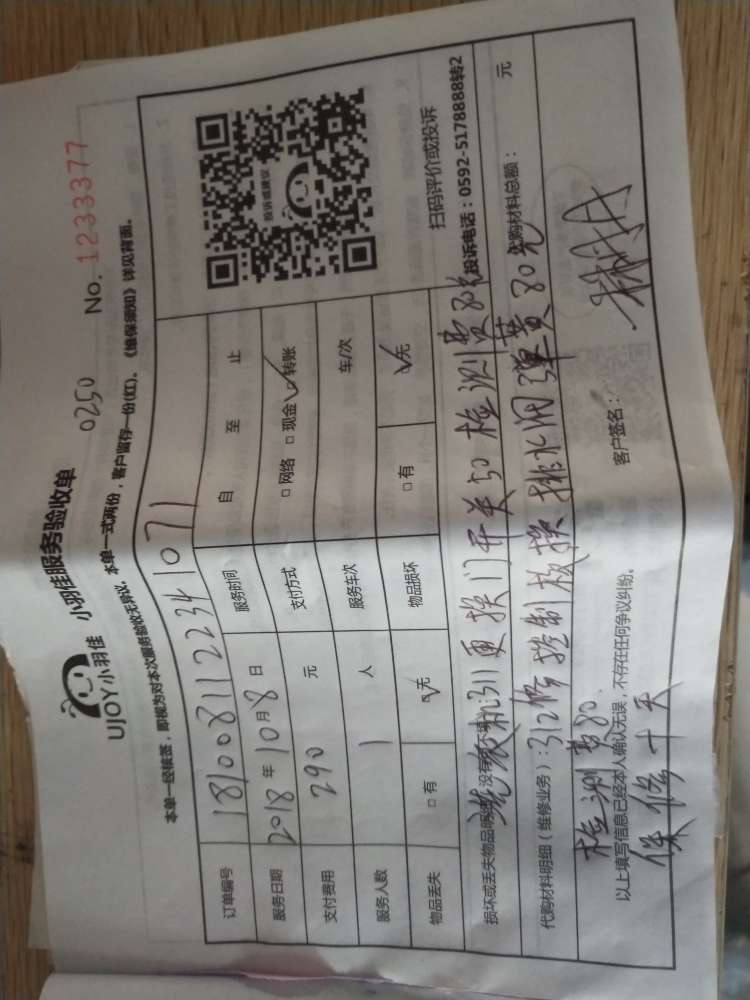 UJOY小羽佳 小羽佳服务验收单
0250 No. 1233377
本单一经核签，即视为对本次服务验收无异议。本单一式两份，客户留存一份(红)。《维保须知》详见背面。
订单编号 1810081122341071
服务日期 2018 年 10 月 8 日 服务时间 自 至 止
支付费用 290 元 支付方式 □ 网络 □ 现金 ☑ 转账
服务人数 1 人 服务车次 车/次
物品丢失 □ 有 ☑ 无 物品损坏 □ 有 ☑ 无
投诉或建议
扫码评价或投诉
投诉电话：0592-5178888转2
损坏或丢失物品明细(没有 不填)：洗衣机311更换门开关50 检测费80
代购材料明细（维修业务）：312修控制板换排水阀弹簧80元 代购材料总额： 元
检测费80.
以上填写信息已经本人确认无误，不存在任何争议纠纷。 客户签名：
保修十天